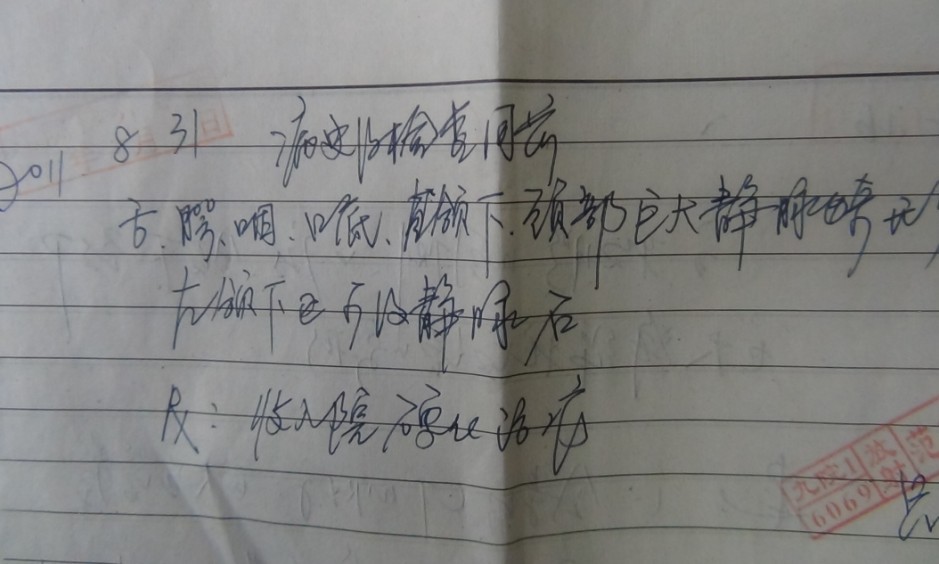 2011 8 31 病史及检查同前
舌、腭、咽、口底、颏颌下、颈部巨大静脉畸形
左颌下区可及静脉石
Rx: 收入院硬化治疗
九院
6069